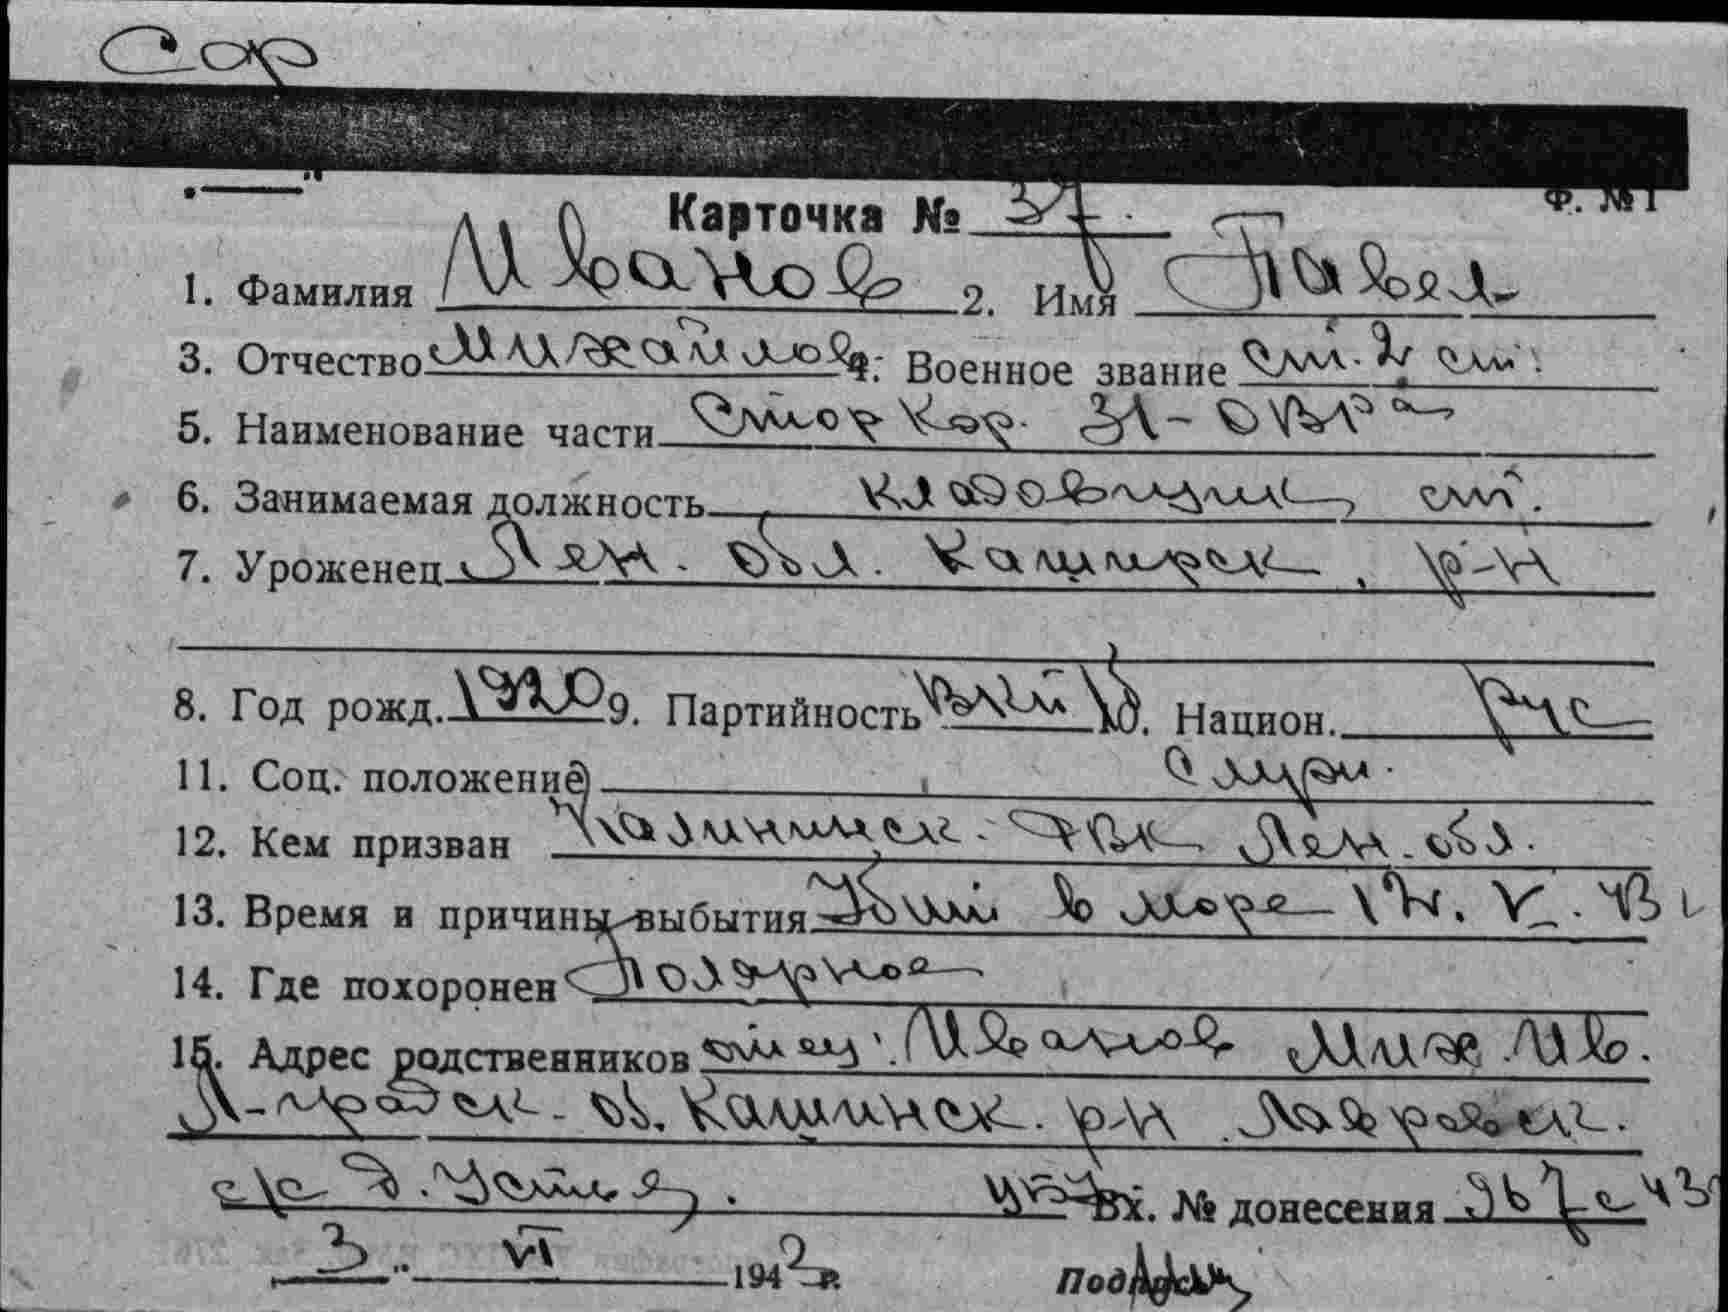 Сор
Ф. № 1
Карточка № 37
1. Фамилия Иванов 2. Имя Павел
3. Отчество Михайлов 4. Военное звание ст. 2 ст.
5. Наименование части Стор Кор. ОВРа
6. Занимаемая должность кладовщик ст.
7. Уроженец Лен. обл. р-н
8. Год рожд. 1920 9. Партийность 10. Национ. рус
11. Соц. положение служ.
12. Кем призван Калининск. РВК Лен. обл.
13. Время и причины выбытия Убит в море V. 43
14. Где похоронен Полярное
15. Адрес родственников отец: Иванов Мих. Ив.
Л-градск. об. р-н Лавровск.
с/с д. Устье. Вх. № донесения 967с 43
3 VI 1943 г. Подпись